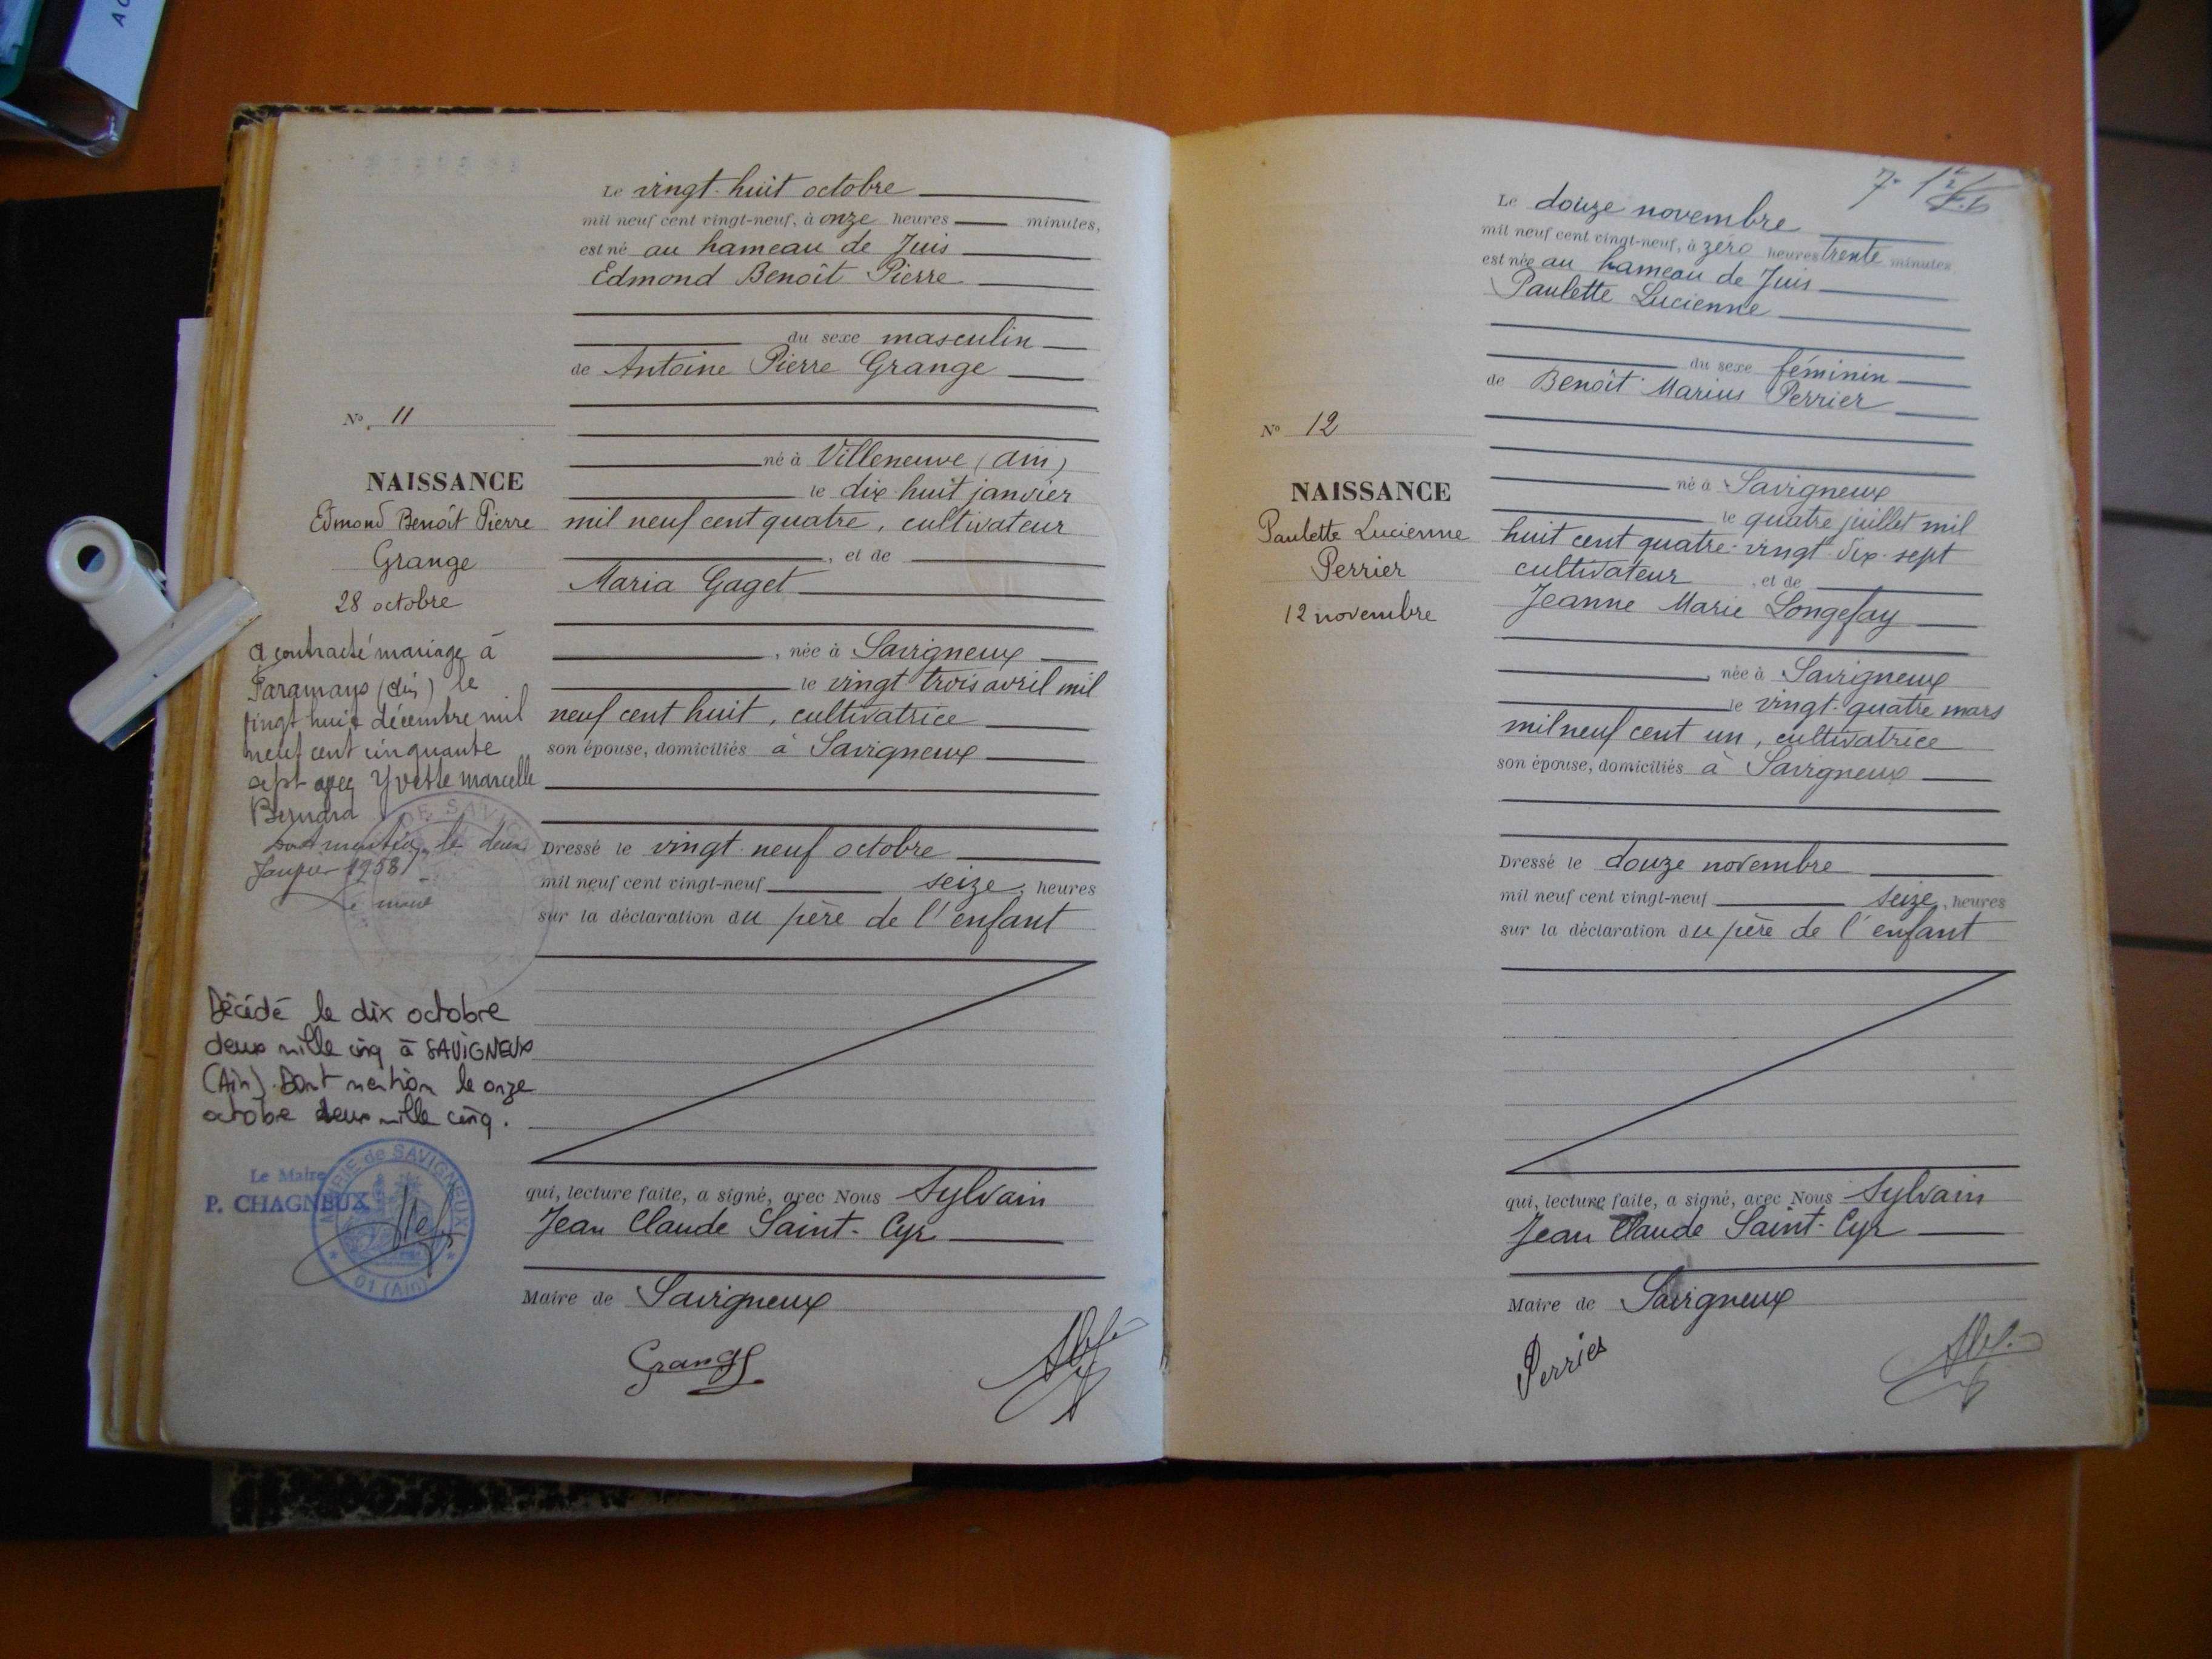 Le vingt-huit octobre
mil neuf cent vingt-neuf, à onze heures minutes,
est né au hameau de Juis
Edmond Benoît Pierre
du sexe masculin
de Antoine Pierre Grange
né à Villeneuve (Ain)
le dix-huit janvier
mil neuf cent quatre, cultivateur
, et de
Maria Gaget
, née à Savigneux
le vingt trois avril mil
neuf cent huit, cultivatrice
son épouse, domiciliés à Savigneux
Dressé le vingt-neuf octobre
mil neuf cent vingt-neuf seize heures
sur la déclaration du père de l'enfant
qui, lecture faite, a signé, avec Nous Sylvain
Jean Claude Saint-Cyr
Maire de Savigneux
Grange
N° 11
NAISSANCE
Edmond Benoît Pierre
Grange
28 octobre
a contracté mariage à
(Ain) le
vingt huit décembre mil
neuf cent cinquante
sept avec Yvette Marcelle
Bernard
Dont mention, le deux
Janvier 1958
Le maire
Décédé le dix octobre
deux mille cinq à SAVIGNEUX
(Ain). Dont mention le onze
octobre deux mille cinq.
Le Maire
P. CHAGNEUX
MAIRIE de SAVIGNEUX
01 (Ain)
Le douze novembre
mil neuf cent vingt-neuf, à zéro heures trente minutes
est née au hameau de Juis
Paulette Lucienne
du sexe féminin
de Benoît Marius Perrier
né à Savigneux
le quatre juillet mil
huit cent quatre-vingt-dix-sept
cultivateur , et de
Jeanne Marie Longefay
, née à Savigneux
le vingt-quatre mars
mil neuf cent un, cultivatrice
son épouse, domiciliés à Savigneux
Dressé le douze novembre
mil neuf cent vingt-neuf seize, heures
sur la déclaration du père de l'enfant
qui, lecture faite, a signé, avec Nous Sylvain
Jean Claude Saint-Cyr
Maire de Savigneux
Perrier
N° 12
NAISSANCE
Paulette Lucienne
Perrier
12 novembre